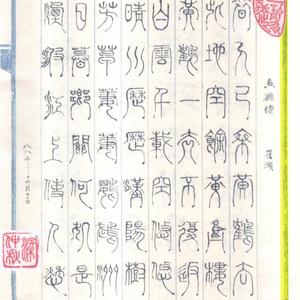 黃鶴樓 崔顥
昔人已乘黃鶴去
此地空餘黃鶴樓
黃鶴一去不復返
白雲千載空悠悠
晴川歷歷漢陽樹
芳草萋萋鸚鵡洲
日暮鄉關何處是
煙波江上使人愁